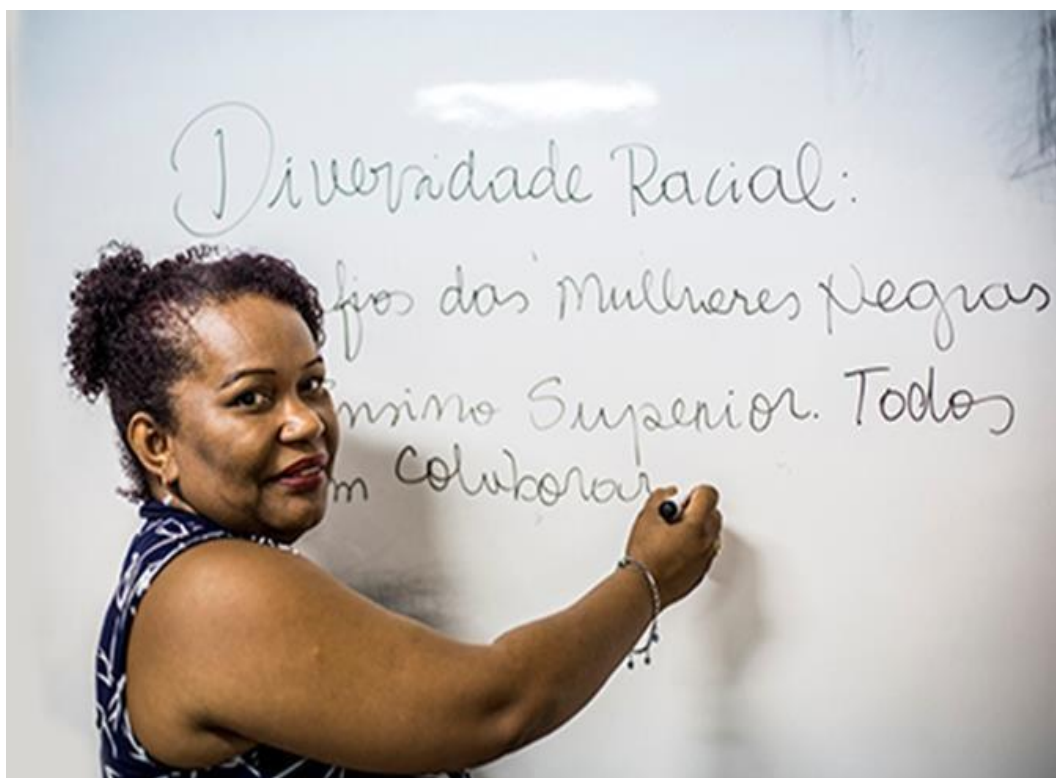 Diversidade Racial:
fios das Mulheres Negras
nsino Superior. Todos
m colaborar